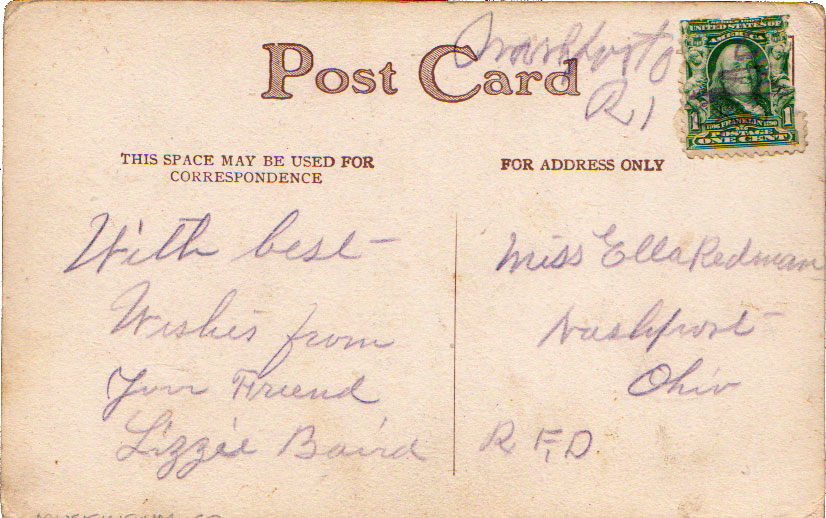 Post Card
Nashport O
R 1
UNITED STATES OF
AMERICA
1 FRANKLIN 1
POSTAGE
ONE CENT
THIS SPACE MAY BE USED FOR
CORRESPONDENCE
FOR ADDRESS ONLY
With best
Wishes from
Your Friend
Lizzie Baird
Miss Ella Redman
Nashport
Ohio
R F, D.